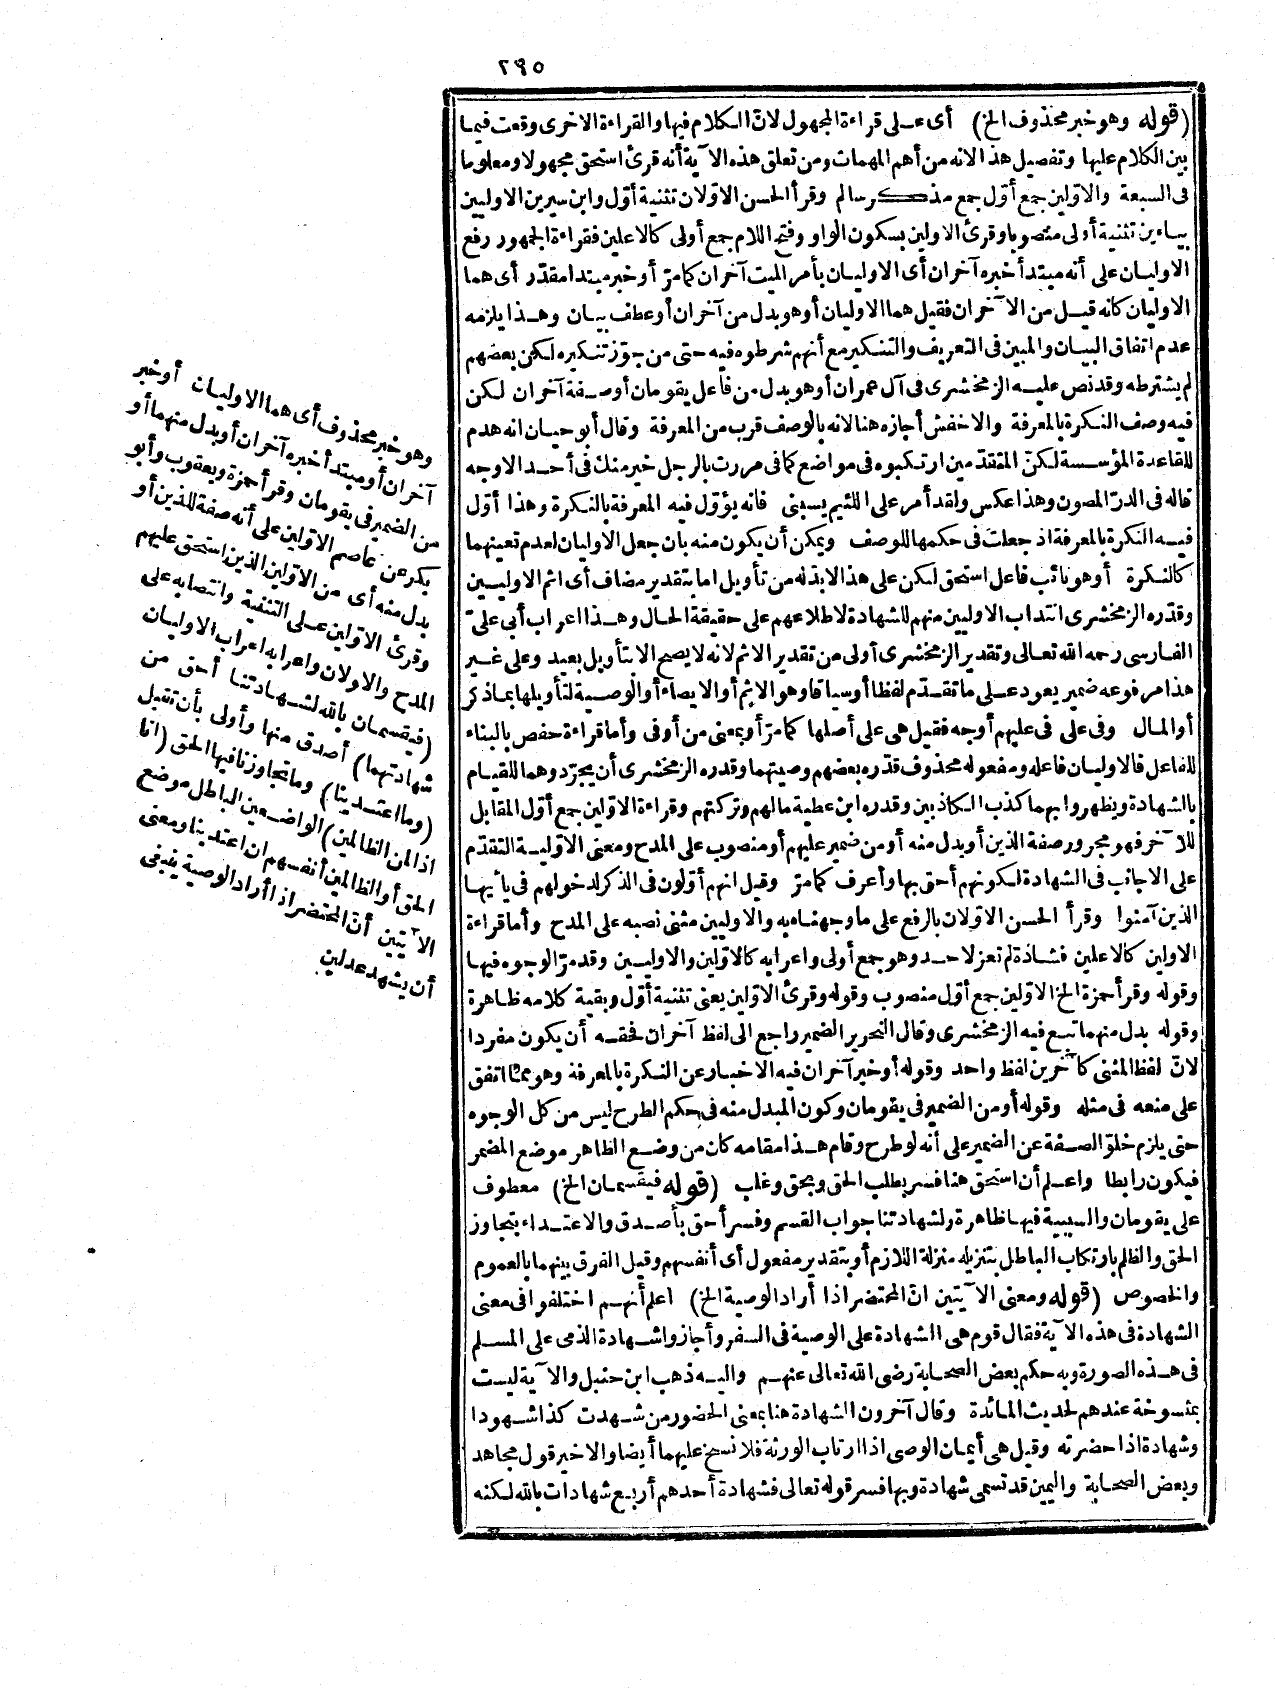 ٢٩٥
(قوله وهو خبر محذوف الخ) أى على قراءة المجهول لانّ الكلام فيها والقراءة الاخرى وقعت فيما
بين الكلام عليها وتفصيل هذا لانه من أهم المهمات ومن تعلق هذه الآية أنه قرئ استحق مجهولا ومعلوما
فى السبعة والاوّلين جمع أوّل جمع مذكر سالم وقرأ الحسن الاوّلان تثنية أوّل وابن سيرين الاوليين
بياءين تثنية أولى منصوبا وقرئ الاولين بسكون الواو وفتح اللام جمع أولى كالاعلين فقراءة الجمهور رفع
الاوليان على أنه مبتدأ خبره آخران أى الاوليان بأمر الميت آخران كمامرّ أو خبر مبتدا مقدّر أى هما
الاوليان كانه قيل من الآخران فقيل هما الاوليان أو هو بدل من آخران أو عطف بيان وهذا يلزمه
عدم اتفاق البيان والمبين فى التعريف والتنكير مع أنهم شرطوه فيه حتى من جوّز تنكيره لكن بعضهم
لم يشترطه وقد نص عليه الزمخشرى فى آل عمران أو هو بدل من فاعل يقومان أو صفة آخران لكن
فيه وصف النكرة بالمعرفة والاخفش أجازه هنا لانه بالوصف قرب من المعرفة وقال أبو حيان انه هدم
للقاعدة المؤسسة لكنّ المتقدّمين ارتكبوه فى مواضع كما فى مررت بالرجل خير منك فى أحد الاوجه
قاله فى الدرّ المصون وهذا عكس ولقد أمر على اللئيم يسبنى فانه يؤوّل فيه المعرفة بالنكرة وهذا أوّل
فيه النكرة بالمعرفة اذ جعلت فى حكمها للوصف ويمكن أن يكون منه بان جعل الاوليان لعدم تعينهما
كالنكرة أو هو نائب فاعل استحق لكن على هذا لابدّ له من تأويل اما بتقدير مضاف أى اثم الاوليين
وقدّره الزمخشرى انتداب الاوليين منهم للشهادة لاطلاعهم على حقيقة الحال وهذا اعراب أبى علىّ
الفارسى رحمه الله تعالى وتقدير الزمخشرى أولى من تقدير الاثم لانه لا يصح الا بتأويل بعيد وعلى غير
هذا مرفوعه ضمير يعود على ما تقدّم لفظا أو سياقا وهو الاثم أو الايصاء أو الوصية لتأويلها بما ذكر
أو المال وفى على فى عليهم أوجه فقيل هى على أصلها كمامرّ أو بمعنى من أو فى وأما قراءة حفص بالبناء
للفاعل فالاوليان فاعله ومفعوله محذوف قدّره بعضهم وصيتهما وقدره الزمخشرى أن يجرّدوهما للقيام
بالشهادة ويظهروا بهما كذب الكاذبين وقدره ابن عطية مالهم وتركتهم وقراءة الاوّلين جمع أوّل المقابل
للآخر فهو مجرور صفة الذين أو بدل منه أو من ضمير عليهم أو منصوب على المدح ومعنى الاوّلية التقدّم
على الاجانب فى الشهادة لكونهم أحق بها وأعرف كمامرّ وقيل انهم أوّلون فى الذكر لدخولهم فى يا أيها
الذين آمنوا وقرأ الحسن الاوّلان بالرفع على ما وجهناه به والاوليين مثنى نصبه على المدح وأما قراءة
الاولين كالاعلين فشاذة لم تعز لاحد وهو جمع أولى واعرابه كالاوّلين والاوليين وقد مرّ الوجوه فيها
وقوله وقرأ حمزة الخ الاوّلين جمع أوّل منصوب وقوله وقرئ الاوّلين يعنى تثنية أوّل وبقية كلامه ظاهرة
وقوله بدل منهما تبع فيه الزمخشرى وقال النحرير الضمير راجع الى لفظ آخران فحقه أن يكون مفردا
لانّ لفظ المثنى كآخرين لفظ واحد وقوله أو خبر آخران فيه الاخبار عن النكرة بالمعرفة وهو مما اتفق
على منعه فى مثله وقوله أو من الضمير فى يقومان وكون المبدل منه فى حكم الطرح ليس من كل الوجوه
حتى يلزم خلوّ الصفة عن الضمير على أنه لو طرح وقام هذا مقامه كان من وضع الظاهر موضع المضمر
فيكون رابطا واعلم أن استحق هنا فسر بطلب الحق وبحق وغلب (قوله فيقسمان الخ) معطوف
على يقومان والسببية فيها ظاهرة ولشهادتنا جواب القسم وفسر أحق بأصدق والاعتداء بتجاوز
الحق والظلم بارتكاب الباطل بتنزيله منزلة اللازم أو بتقدير مفعول أى أنفسهم وقيل الفرق بينهما بالعموم
والخصوص (قوله ومعنى الآيتين انّ المحتضر اذا أراد الوصية الخ) اعلم أنهم اختلفوا فى معنى
الشهادة فى هذه الآية فقال قوم هى الشهادة على الوصية فى السفر وأجازوا شهادة الذمى على المسلم
فى هذه الصورة وبه حكم بعض الصحابة رضى الله تعالى عنهم واليه ذهب ابن حنبل والآية ليست
بمنسوخة عندهم لحديث المائدة وقال آخرون الشهادة هنا بمعنى الحضور من شهدت كذا شهودا
وشهادة اذا حضرته وقيل هى أيمان الوصى اذا ارتاب الورثة فلا نسخ عليهما أيضا والاخير قول مجاهد
وبعض الصحابة واليمين قد تسمى شهادة وبها فسر قوله تعالى فشهادة أحدهم أربع شهادات بالله لكنه
وهو خبر محذوف أى هما الاوليان أو خبر
آخران أو مبتدأ خبره آخران أو بدل منهما أو
من الضمير فى يقومان وقرأ حمزة ويعقوب وأبو
بكر عن عاصم الاوّلين على أنه صفة للذين أو
بدل منه أى من الاوّلين الذين استحق عليهم
وقرئ الاوّلين على التثنية وانتصابه على
المدح والاولان واعرابه اعراب الاوليان
(فيقسمان بالله لشهادتنا أحق من
شهادتهما) أصدق منها وأولى بأن تقبل
(وما اعتدينا) وما تجاوزنا فيها الحق (انا
اذا لمن الظالمين) الواضعين الباطل موضع
الحق أو الظالمين أنفسهم ان اعتدينا ومعنى
الآيتين أنّ المحتضر اذا أراد الوصية ينبغى
أن يشهد عدلين